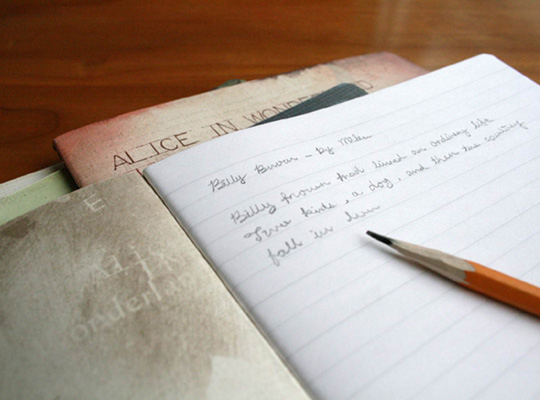 ALICE IN WONDERLAND
E
Alice
onderlan
Billy Brown - By Mike
Billy Brown had lived an ordinary life
Two kids, a dog, and then the country
fall in him